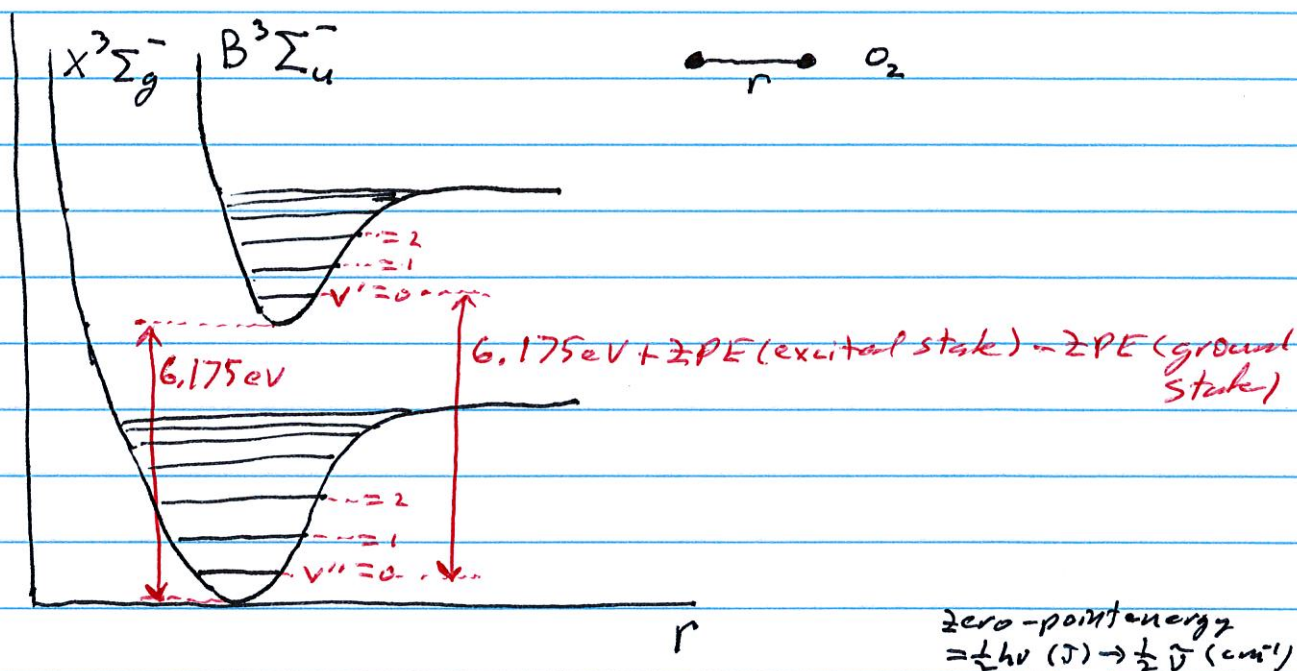 X³Σg⁻ B³Σu⁻
r O₂
= 2
= 1
v' = 0
6.175eV
6.175eV + ZPE (excited state) - ZPE (ground state)
= 2
= 1
v'' = 0
r
zero-point energy
= ½ hν (J) → ½ ν̃ (cm⁻¹)